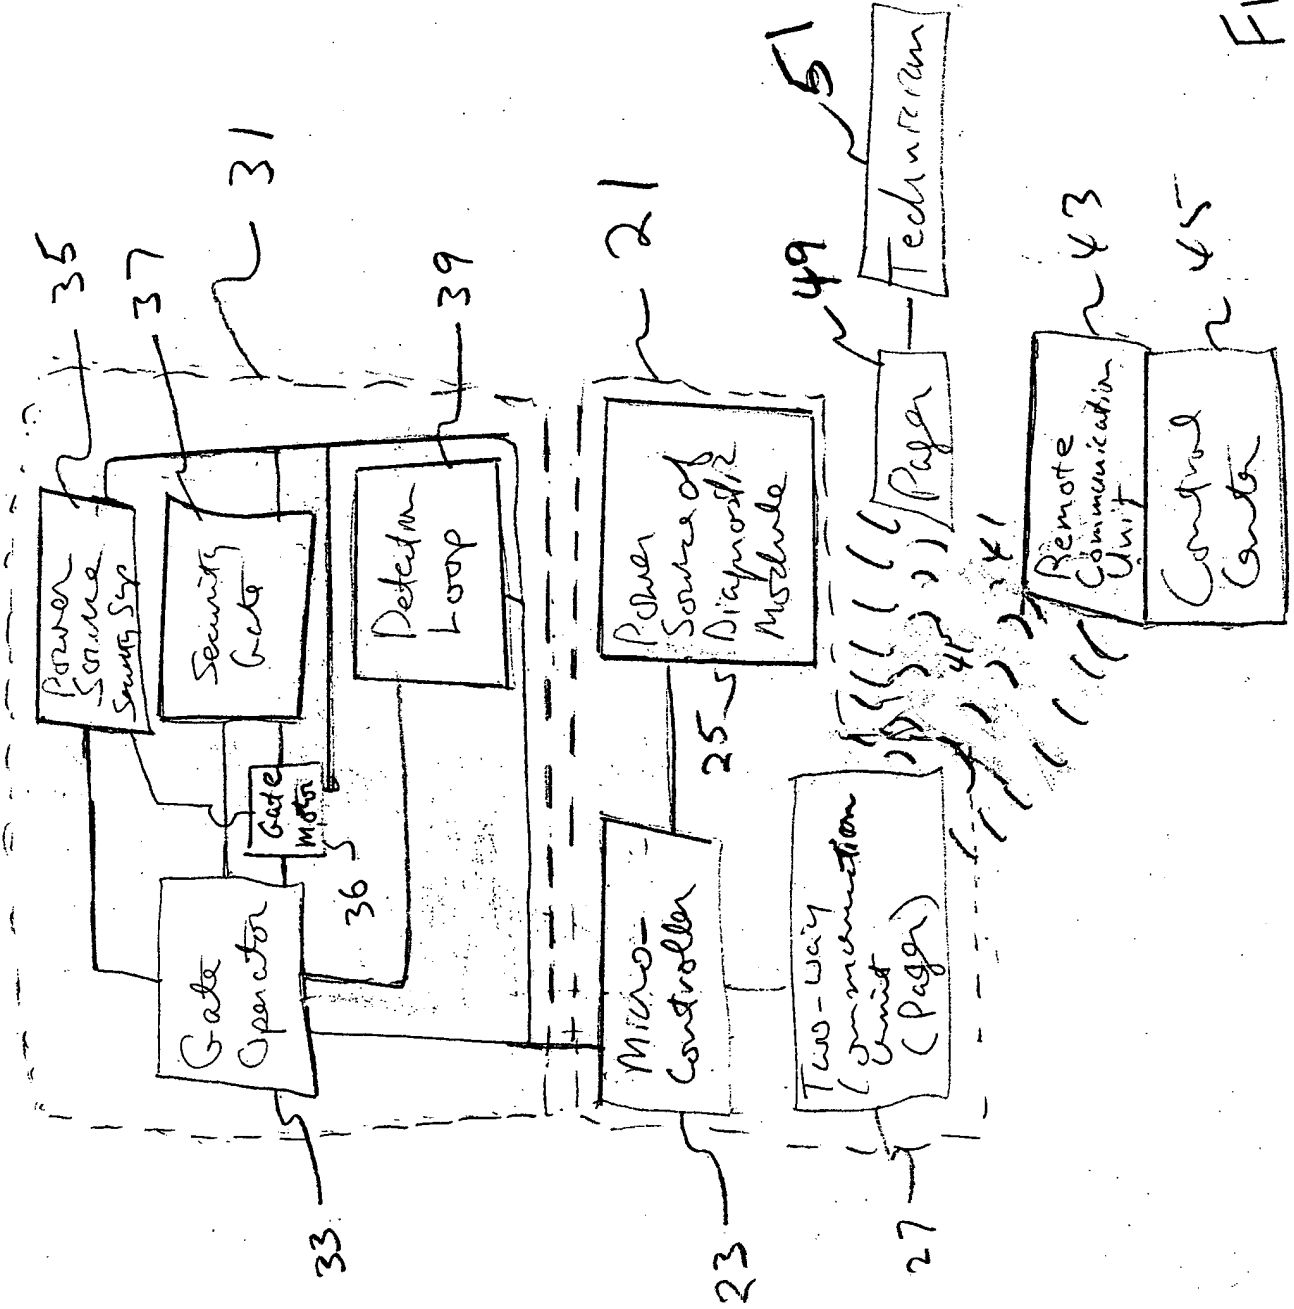 35
37
31
39
Power
Source
Security Sys
Security
Gate
Detection
Loop
Gate
Motor
36
Gate
Operator
33
21
Power
Source of
Diagnostic
Module
25
Micro-
Controller
23
Two-way
Communication
Unit
(Pager)
27
49
Pager
51
Technician
41
41
Remote
Communication
Unit
43
Control
Center
45